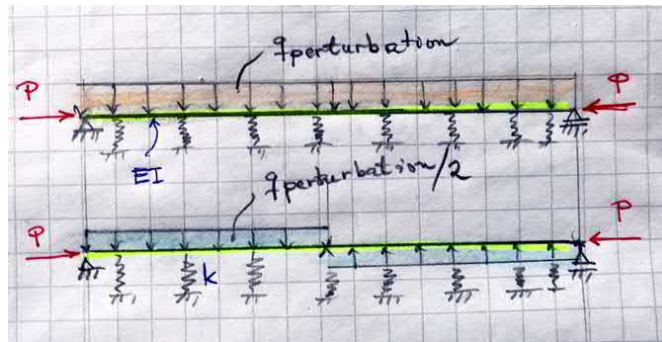 qperturbation
P
P
EI
qperturbation/2
P
P
k